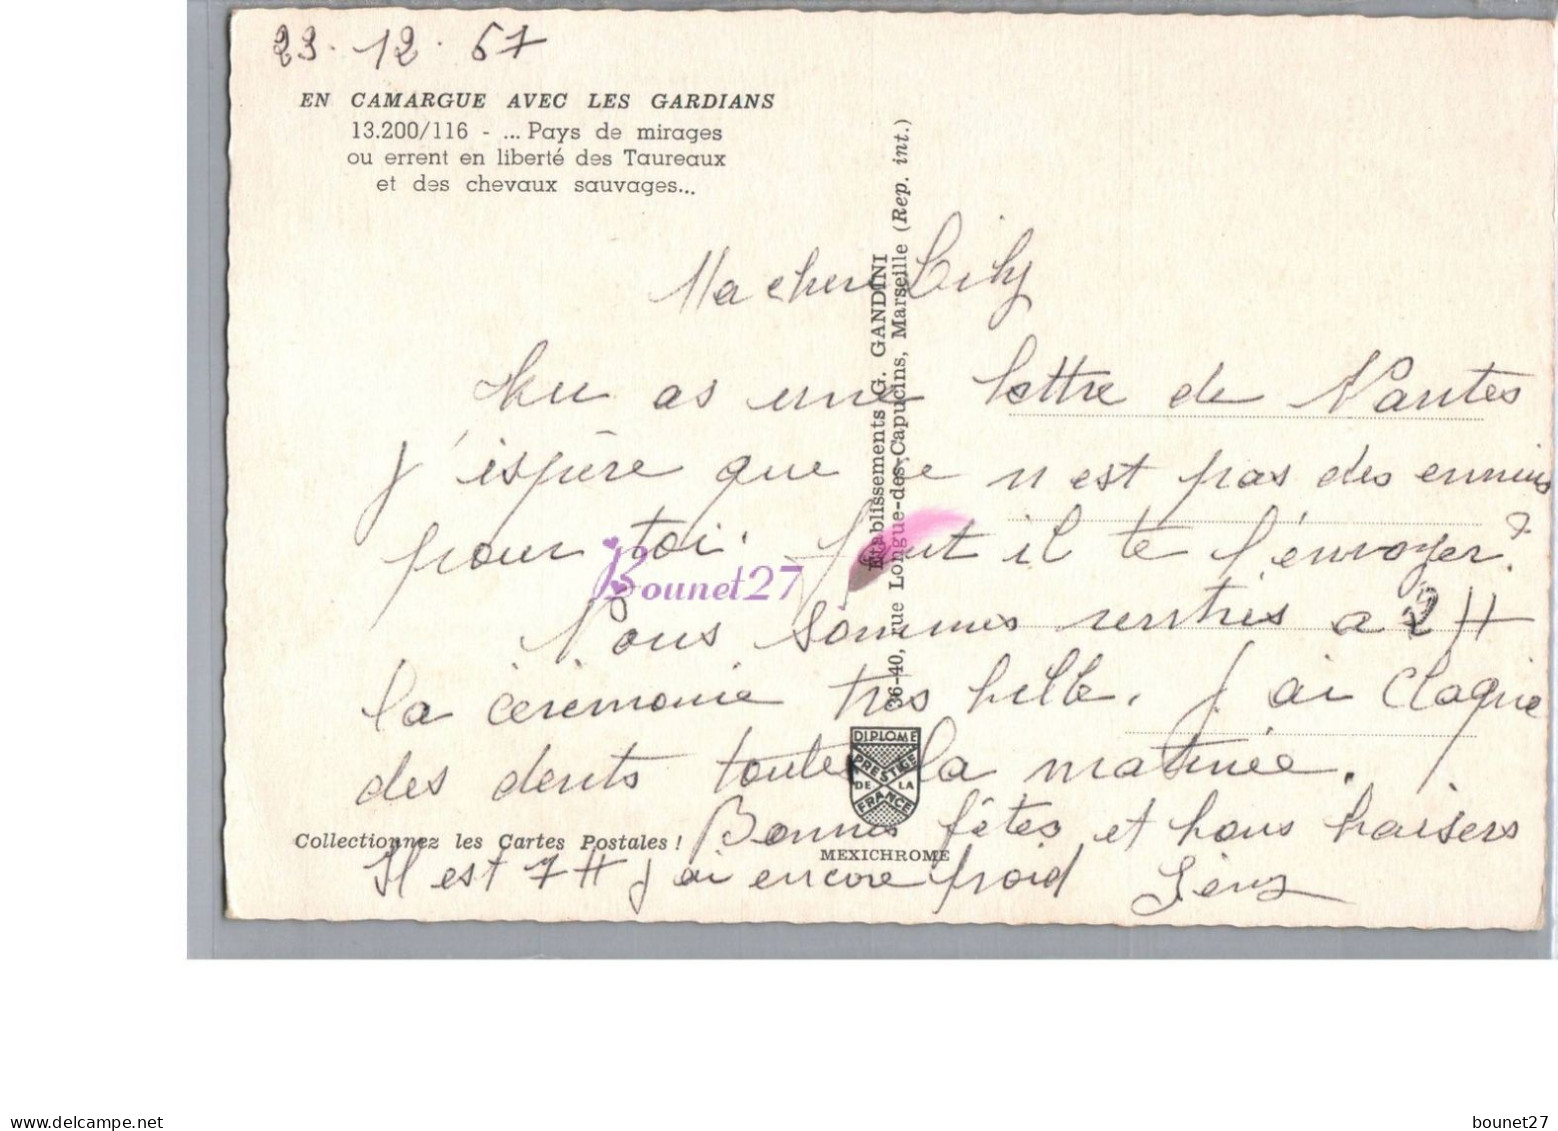 23.12.67
EN CAMARGUE AVEC LES GARDIANS
13.200/116 - ... Pays de mirages
ou errent en liberté des Taureaux
et des chevaux sauvages...
Ma chere Lily
tu as une lettre de Nantes
j'ispère que ce n est pas des ennuis
pour toi. faut il te l'envoyer?
Nous sommes rentrés a 2 H
la cérémonie tres belle. J'ai claqué
des dents toute la matinée.
Bonnes fêtes et bons baisers
Il est 7 H j ai encore froid
Etablissements G. GANDINI
36-40, rue Longue-des-Capucins, Marseille (Rep. int.)
DIPLOME
PRESTIGE
DE LA
FRANCE
MEXICHROME
Collectionnez les Cartes Postales !
Bounet27
www.delcampe.net
bounet27